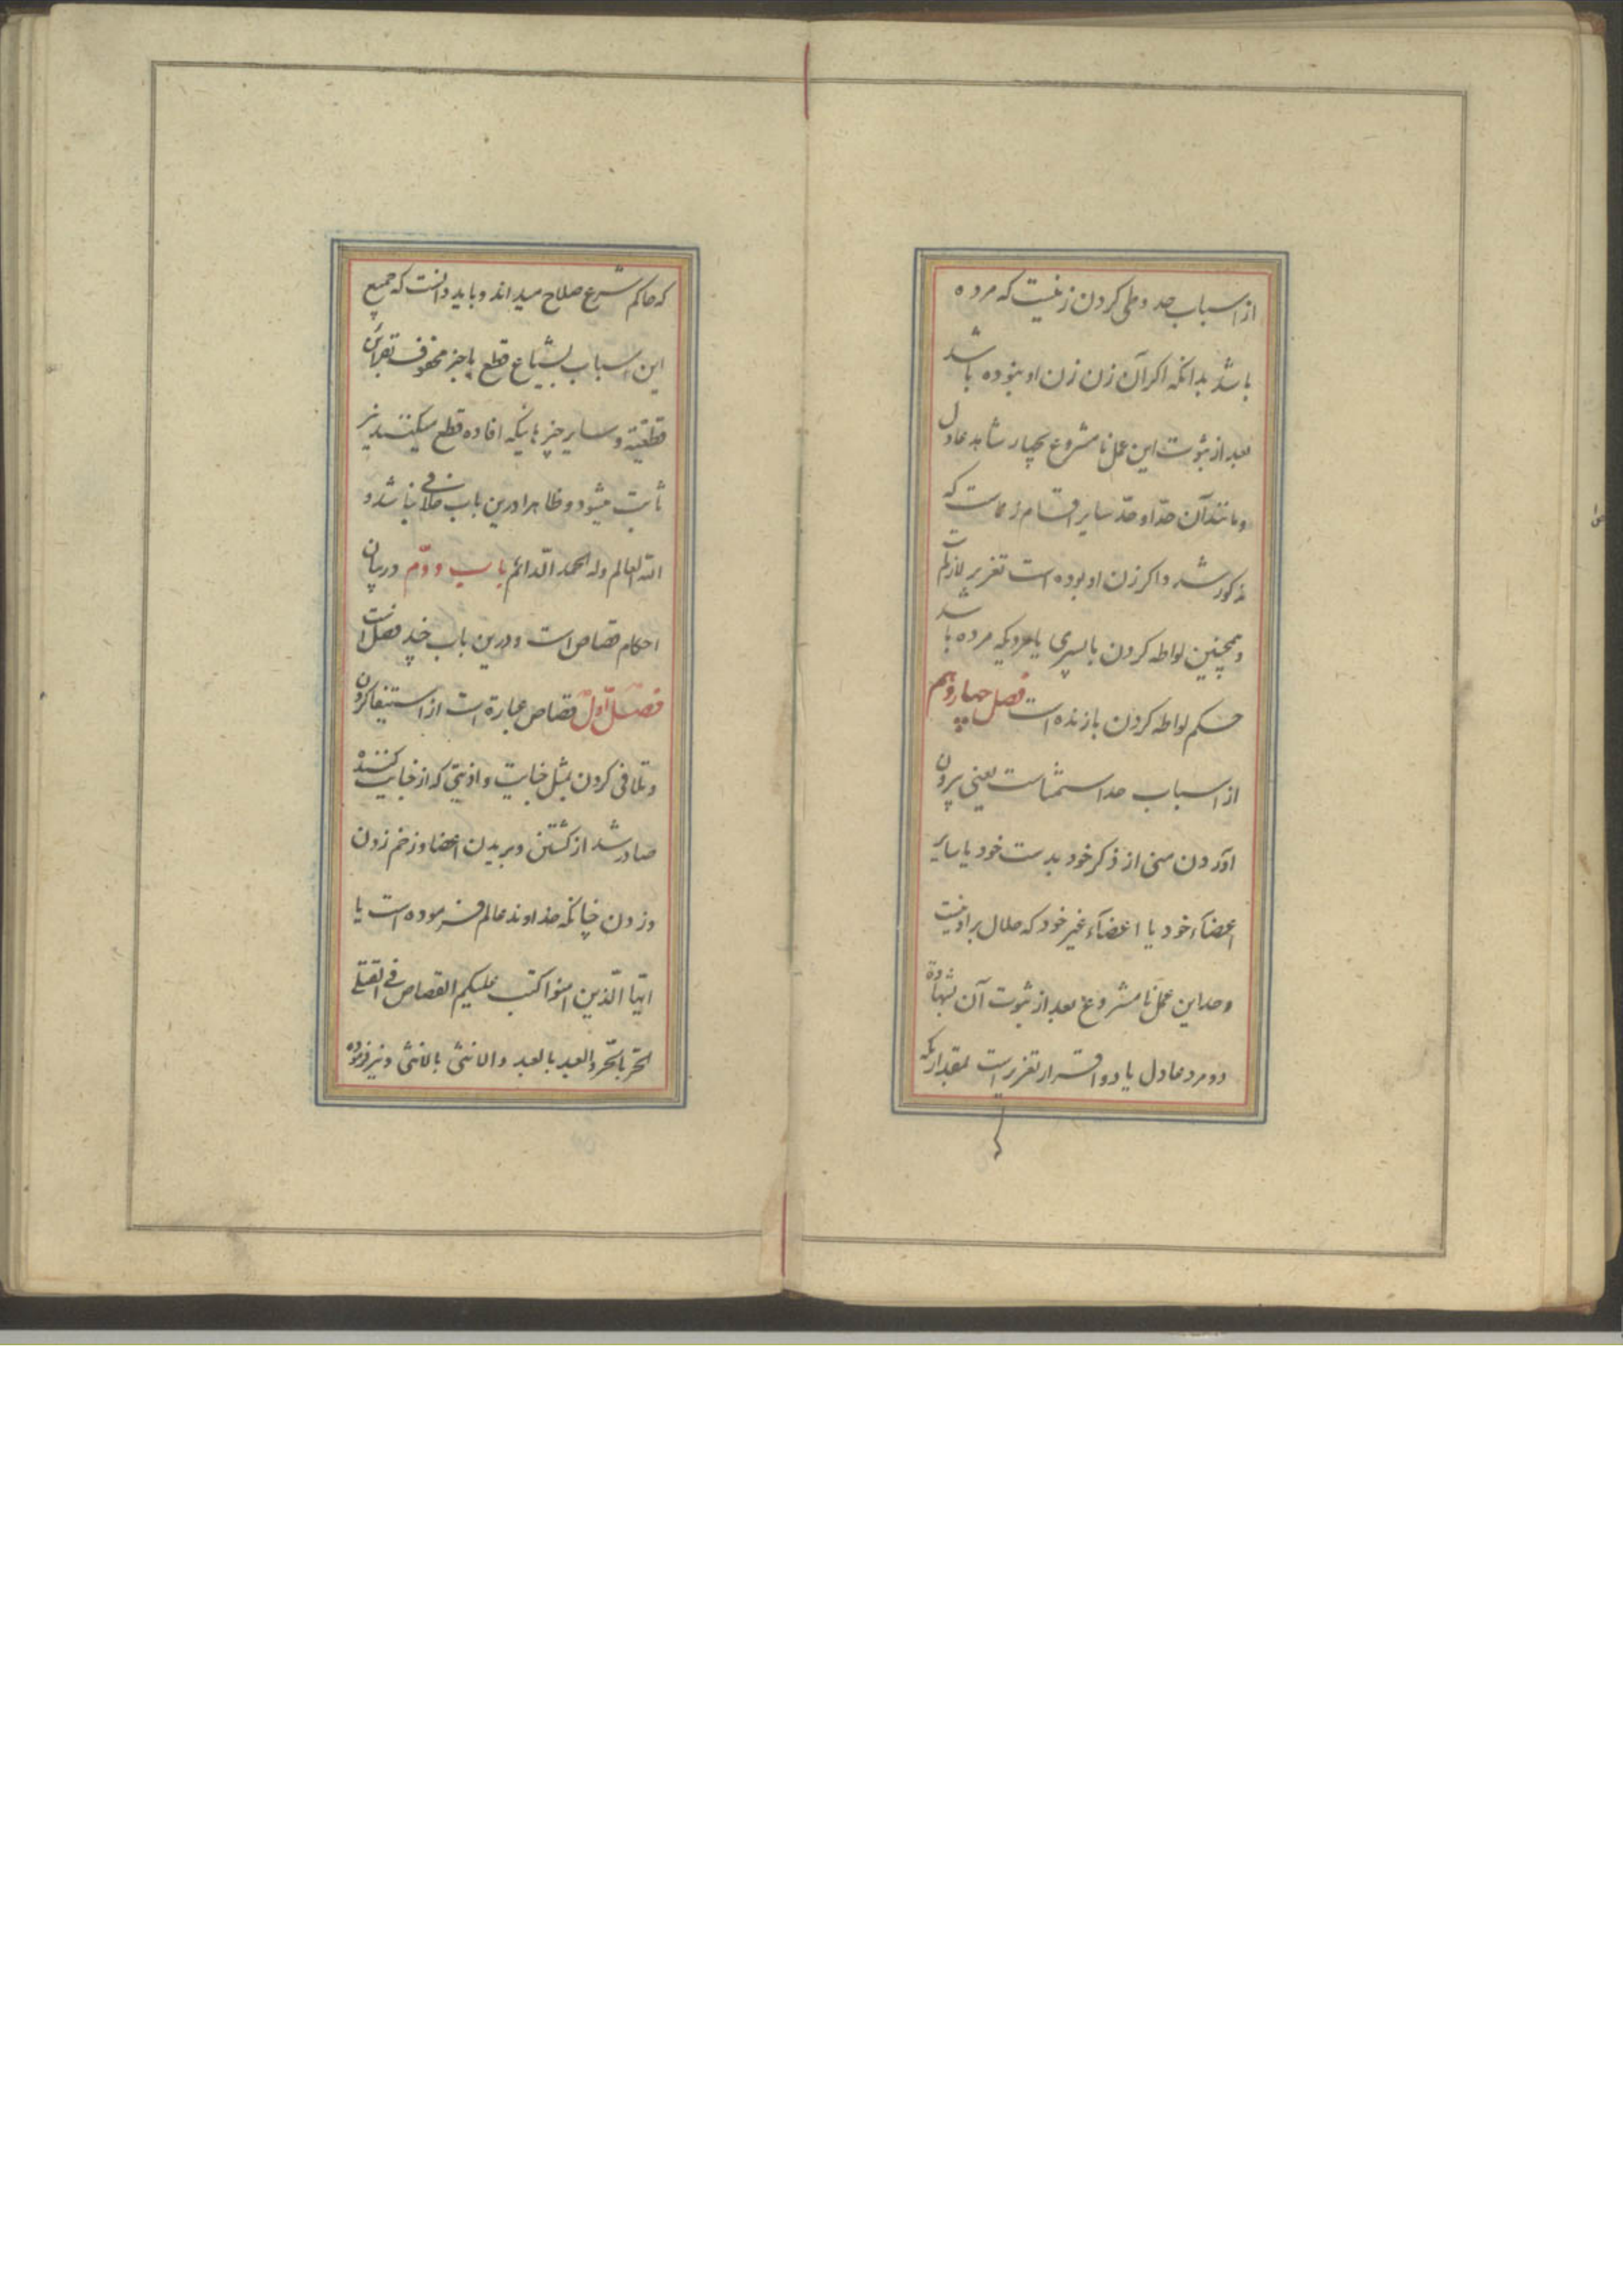 از اسباب حد وطی کردن زنیست که مرده
باشد بدانکه اکر آن زن زن او نبوده باشد
بعد از ثبوت این عمل نامشروع بچهار شاهد عادل
و مانند آن حدّ او حدّ سایر اقسام زناست که
مذکور شد و اکر زن او بوده است تعزیر لازمست
و همچنین لواطه کردن با پسری یا مردیکه مرده باشد
حکم لواطه کردن با زنده است فصل چهاردهم
از اسباب حد استمناست یعنی بیرون
آوردن منی از ذکر خود بدست خود یا سایر
اعضآء خود یا اعضآء غیر خود که حلال بر او نیست
و حد این عمل نامشروع بعد از ثبوت آن بشهادة
دو مرد عادل یا دو اقرار تعزیر است بمقداریکه
که حاکم شرع صلاح میداند و باید دانست که جمیع
این اسباب بشیاع قطع یا خبر محفوف بقراین
قطعیّه و سایر چیزهائیکه افاده قطع میکنند نیز
ثابت میشود و ظاهرا درین باب خلافی نباشد و
الله العالم وله الحمد الدّائم باب دوّم در بیان
احکام قصاص است و درین باب چند فصل است
فصل اوّل قصاص عبارة است از استیفا کردن
و تلافی کردن بمثل جنایت و اذیتی که از جنایت کننده
صادر شد از کشتن و بریدن اعضا و زخم زدن
و زدن چنانکه خداوند عالم فرموده است یا
ایها الّذین امنوا کتب علیکم القصاص فی القتلی
الحرّ بالحرّ والعبد بالعبد والانثی بالانثی و نیز فرموده